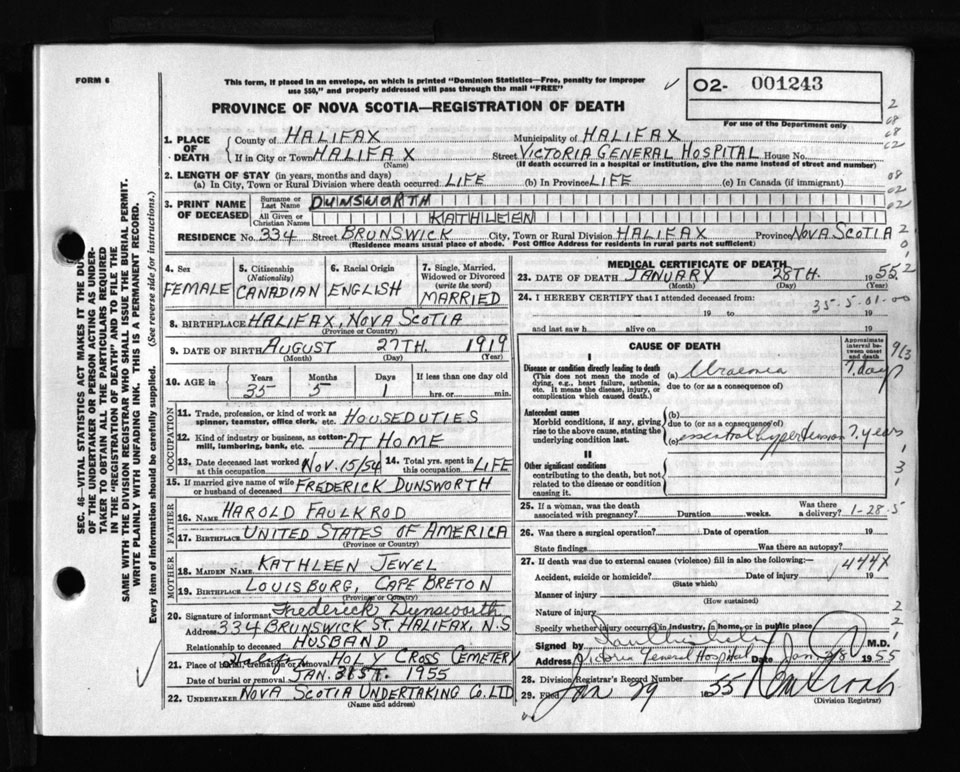 FORM 6
This form, if placed in an envelope, on which is printed "Dominion Statistics—Free, penalty for improper
use $50," and properly addressed will pass through the mail "FREE"
O2- 001243
For use of the Department only
PROVINCE OF NOVA SCOTIA—REGISTRATION OF DEATH
SEC. 46 VITAL STATISTICS ACT MAKES IT THE DU
OF THE UNDERTAKER OR PERSON ACTING AS UNDER-
TAKER TO OBTAIN ALL THE PARTICULARS REQUIRED
IN THE "REGISTRATION OF DEATH" AND TO FILE THE
SAME WITH THE DIVISION REGISTRAR WHO SHALL ISSUE THE BURIAL PERMIT.
WRITE PLAINLY WITH UNFADING INK. THIS IS A PERMANENT RECORD.
Every item of information should be carefully supplied. (See reverse side for instructions.)
1. PLACE OF DEATH
County of HALIFAX Municipality of HALIFAX
If in City or Town HALIFAX Street VICTORIA GENERAL HOSPITAL House No.
(Name) (If death occurred in a hospital or institution, give the name instead of street and number)
2. LENGTH OF STAY (in years, months and days)
(a) In City, Town or Rural Division where death occurred LIFE (b) In Province LIFE (c) In Canada (if immigrant)
3. PRINT NAME OF DECEASED
Surname or Last Name DUNSWORTH
All Given or Christian Names KATHLEEN
RESIDENCE No. 334 Street BRUNSWICK City, Town or Rural Division HALIFAX Province NOVA SCOTIA
(Residence means usual place of abode. Post Office Address for residents in rural parts not sufficient)
4. Sex FEMALE
5. Citizenship (Nationality) CANADIAN
6. Racial Origin ENGLISH
7. Single, Married, Widowed or Divorced (write the word) MARRIED
8. BIRTHPLACE HALIFAX, NOVA SCOTIA
(Province or Country)
9. DATE OF BIRTH AUGUST 27TH. 1919
(Month) (Day) (Year)
10. AGE IN Years Months Days If less than one day old
35 5 1 hrs. or min.
OCCUPATION
11. Trade, profession, or kind of work as
spinner, teamster, office clerk, etc. HOUSEDUTIES
12. Kind of industry or business, as cotton-
mill, lumbering, bank, etc. AT HOME
13. Date deceased last worked at this occupation NOV. 15/54 14. Total yrs. spent in this occupation LIFE
15. If married give name of wife
or husband of deceased FREDERICK DUNSWORTH
FATHER
16. NAME HAROLD FAULKROD
17. BIRTHPLACE UNITED STATES OF AMERICA
(Province or Country)
MOTHER
18. MAIDEN NAME KATHLEEN JEWEL
19. BIRTHPLACE LOUISBURG, CAPE BRETON
(Province or Country)
20. Signature of informant Frederick Dunsworth
Address 334 BRUNSWICK ST. HALIFAX, N.S
Relationship to deceased HUSBAND
21. Place of burial, cremation or removal HOLY CROSS CEMETERY
Date of burial or removal JAN. 31ST. 1955
22. UNDERTAKER NOVA SCOTIA UNDERTAKING CO. LTD
(Name and address)
MEDICAL CERTIFICATE OF DEATH
23. DATE OF DEATH JANUARY 28TH. 1955
(Month) (Day)
24. I HEREBY CERTIFY that I attended deceased from:
35-5-01-00
19 to 19
and last saw h alive on 19
CAUSE OF DEATH
Approximate interval between onset and death
I
Disease or condition directly leading to death
(This does not mean the mode of
dying, e.g., heart failure, asthenia,
etc. It means the disease, injury, or
complication which caused death.)
(a) Uraemia 7. days
due to (or as a consequence of)
Antecedent causes
Morbid conditions, if any, giving
rise to the above cause, stating the
underlying condition last.
(b)
due to (or as a consequence of)
(c) essential hypertension 7. years
II
Other significant conditions
contributing to the death, but not
related to the disease or condition
causing it.
25. If a woman, was the death associated with pregnancy? Duration weeks. Was there a delivery? 1-28-5
26. Was there a surgical operation? Date of operation 19
State findings Was there an autopsy?
27. If death was due to external causes (violence) fill in also the following:—
444X
Accident, suicide or homicide? Date of injury 19
(State which)
Manner of injury
(How sustained)
Nature of injury
Specify whether injury occurred in industry, in home, or in public place
Signed by M.D.
Address Victoria General Hospital Date Jan 1955
28. Division Registrar's Record Number
29. Filed Jan 29 1955
(Division Registrar)